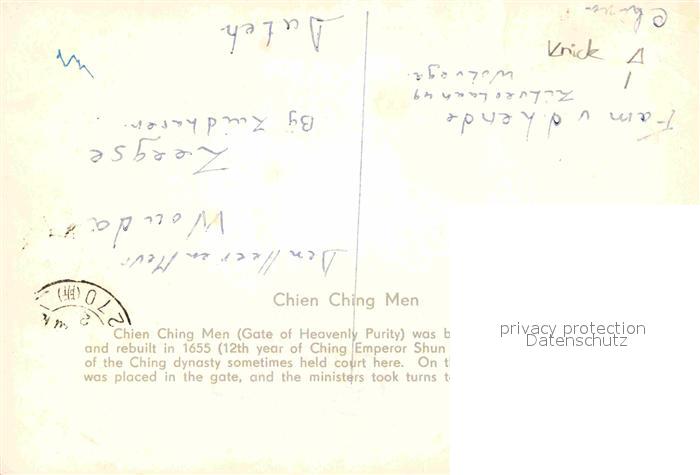 China
Knick
Fam v d hende
Wolvega
Dutch
By Zuidharen
Zeegse
Wouda
Den Heer en Mevr
270
Chien Ching Men
Chien Ching Men (Gate of Heavenly Purity) was b
and rebuilt in 1655 (12th year of Ching Emperor Shun
of the Ching dynasty sometimes held court here. On th
was placed in the gate, and the ministers took turns t
privacy protection
Datenschutz